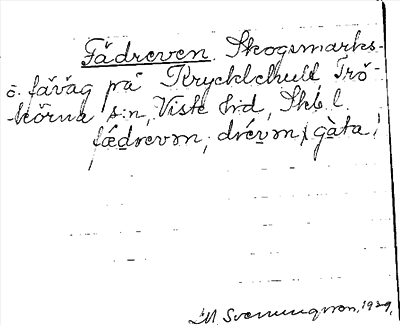 Fädreven. Skogsmark s-
o. fäväg på Kryckleshult Trö-
körna s:n, Viste hrd, Skb. l.
fædrevəm, drévəm, gàta,
M Svenningsson, 1929,